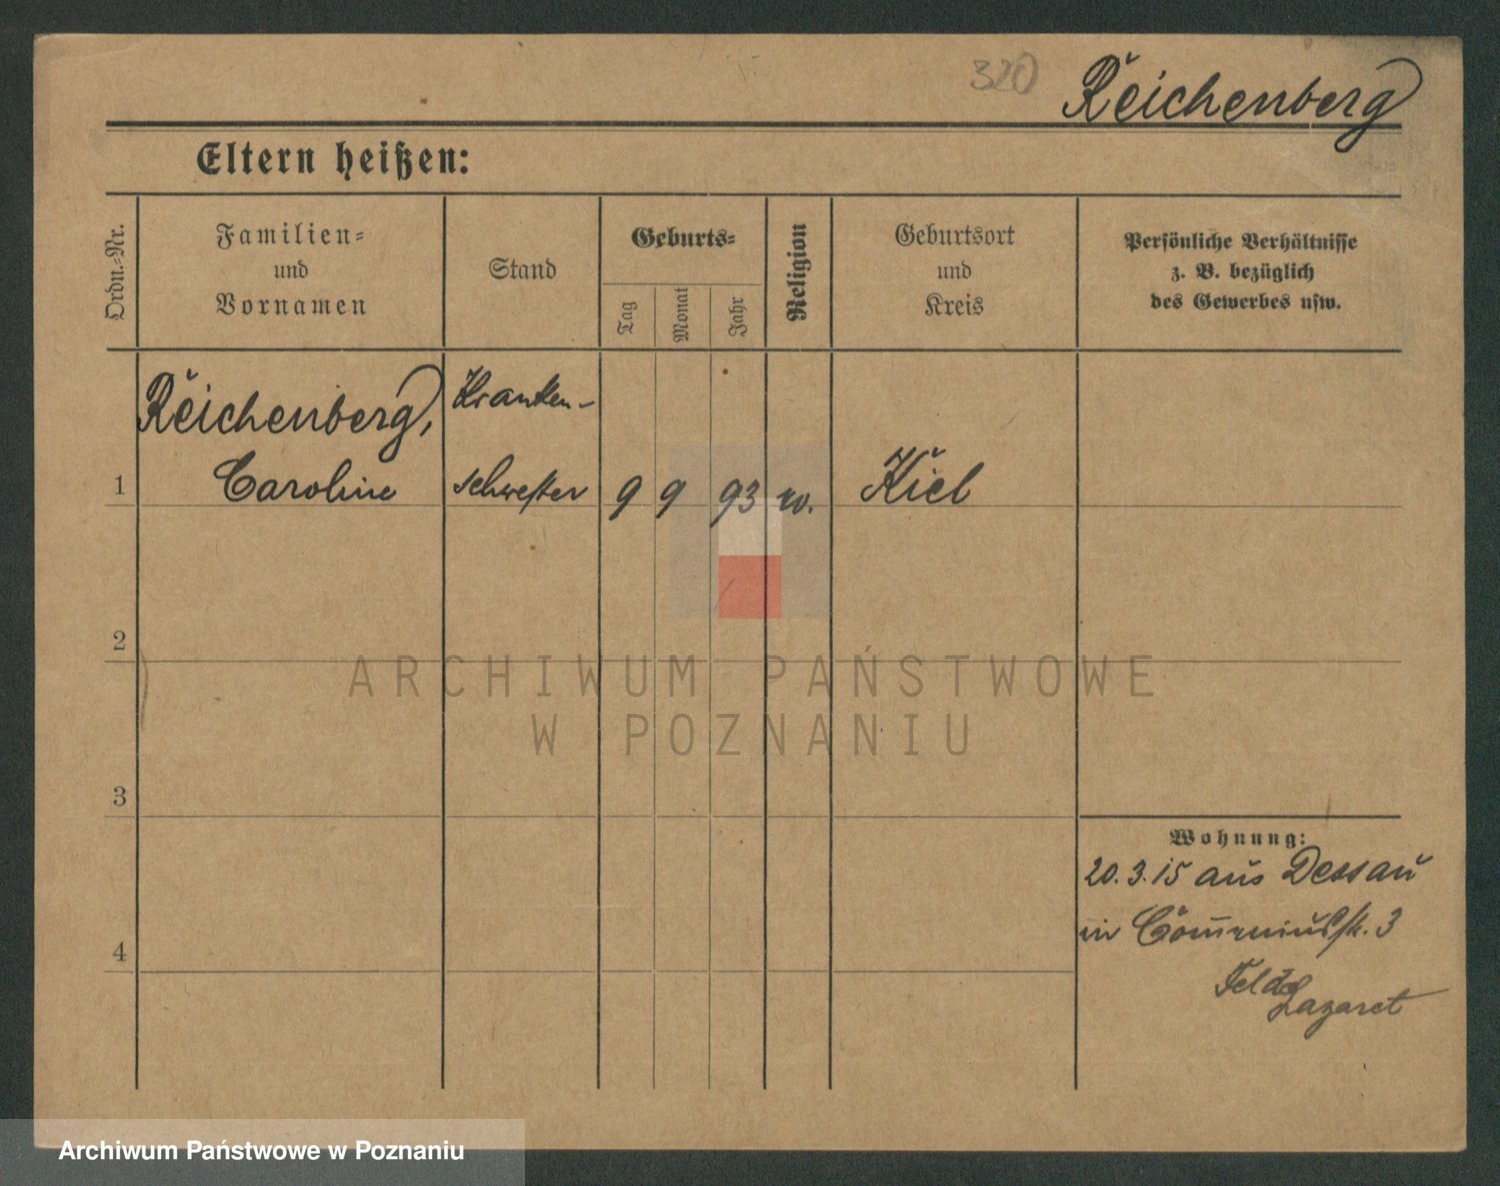 320
Reichenberg
Eltern heißen:
Ordn.-Nr.
Familien-
und
Vornamen
Stand
Geburts-
Tag
Monat
Jahr
Religion
Geburtsort
und
Kreis
Persönliche Verhältnisse
z. B. bezüglich
des Gewerbes usw.
Reichenberg,
Kranken-
1 Caroline schwester 9 9 93 Kiel
2
ARCHIWUM PAŃSTWOWE
W POZNANIU
3
Wohnung:
20.3.15 aus Dessau
in 3
4
Feld
Lazaret
Archiwum Państwowe w Poznaniu